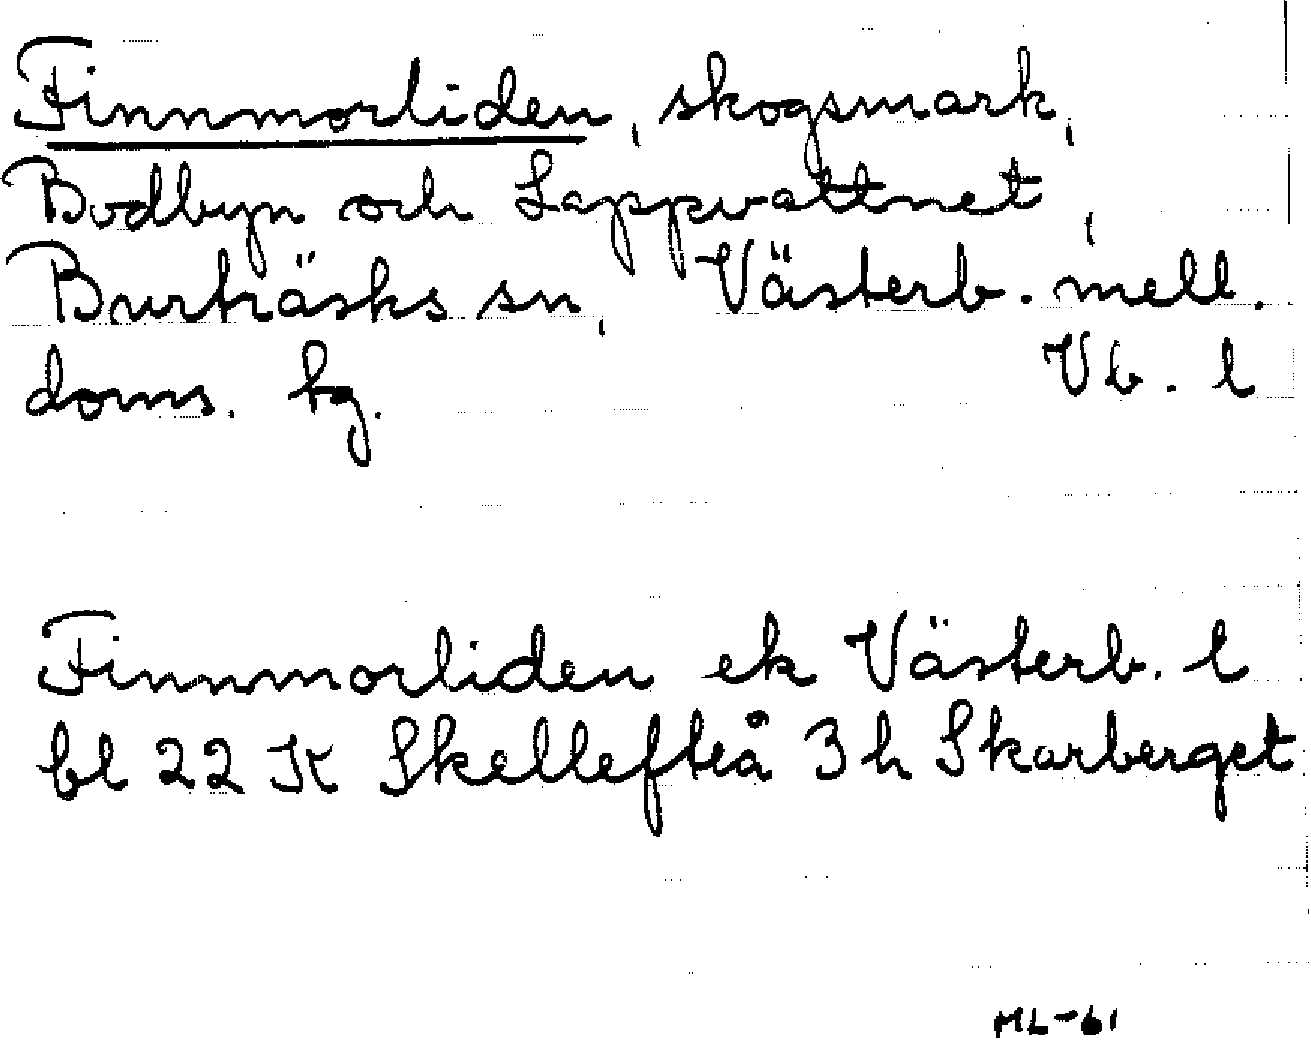 Finnmorliden, skogsmark,
Bodbyn och Lappvattnet,
Burträsks sn, Västerb. mell.
doms. hg. Vb. l
Finnmorliden ek Västerb. l
bl 22 K Skellefteå 3 h Skarberget
ML-61